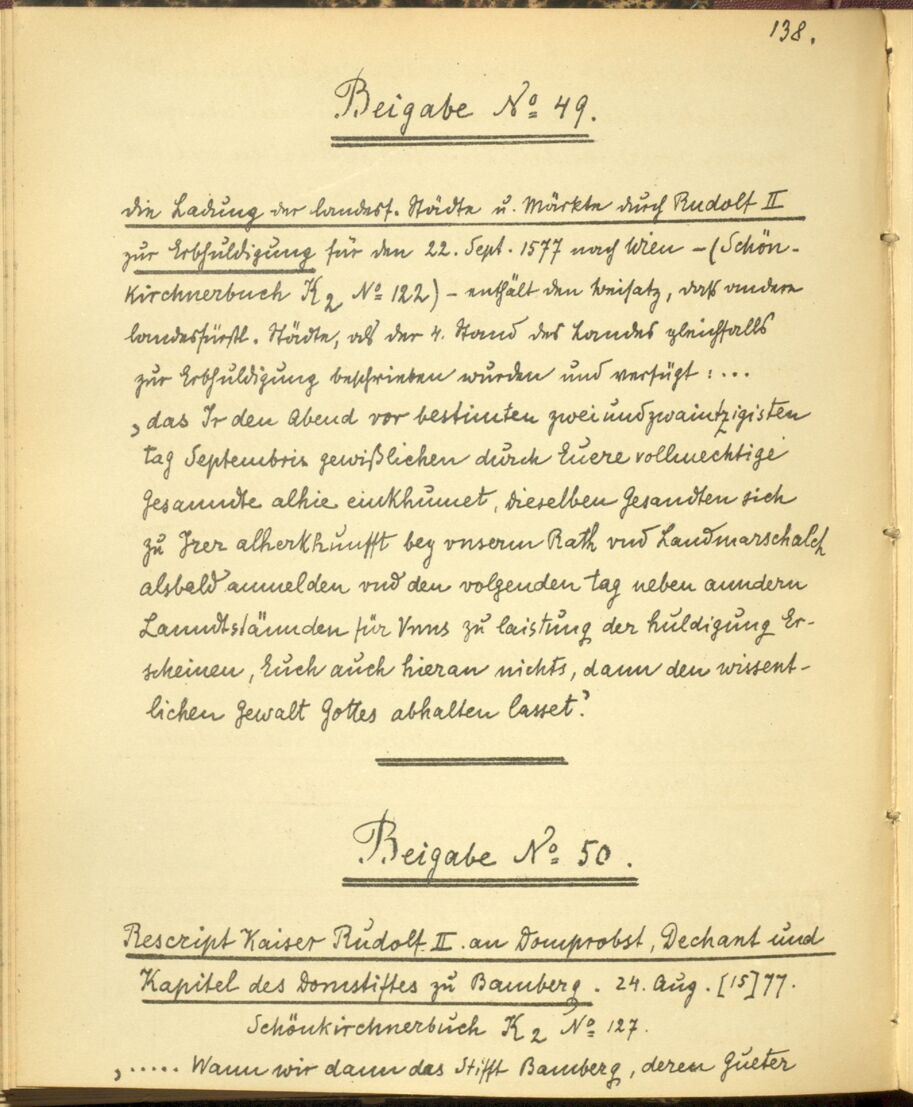 138.
Beigabe No 49.
Die Ladung der landesf. Städte u. Märkte durch Rudolf II
zur Erbhuldigung für den 22. Sept. 1577 nach Wien – (Schön-
kirchnerbuch K2 No 122) – enthält den Beisatz, daß andere
landesfürstl. Städte, als der 4. Stand des Landes gleichfalls
zur Erbhuldigung beschrieben wurden und verfügt: ...
„das Ir den Abend vor bestimten zweiundzwaintzigisten
tag Septembris gewißlichen durch Euere vollmechtige
Gesanndte alhie einkhumet, dieselben Gesandten sich
zu Irer alherkhunfft bey vnserm Rath vnd Landmarschalch
alsbald anmelden vnd den volgenden tag neben anndern
Lanndtstännden für Vnns zu laistung der huldigung Er-
scheinen, Euch auch hieran nichts, dann den wissent-
lichen Gewalt Gottes abhalten lasset."
Beigabe No 50.
Rescript Kaiser Rudolf II. an Domprobst, Dechant und
Kapitel des Domstiftes zu Bamberg. 24. Aug. [15]77.
Schönkirchnerbuch K2 No 127.
„..... Wann wir dann das Stifft Bamberg, deren Gueter